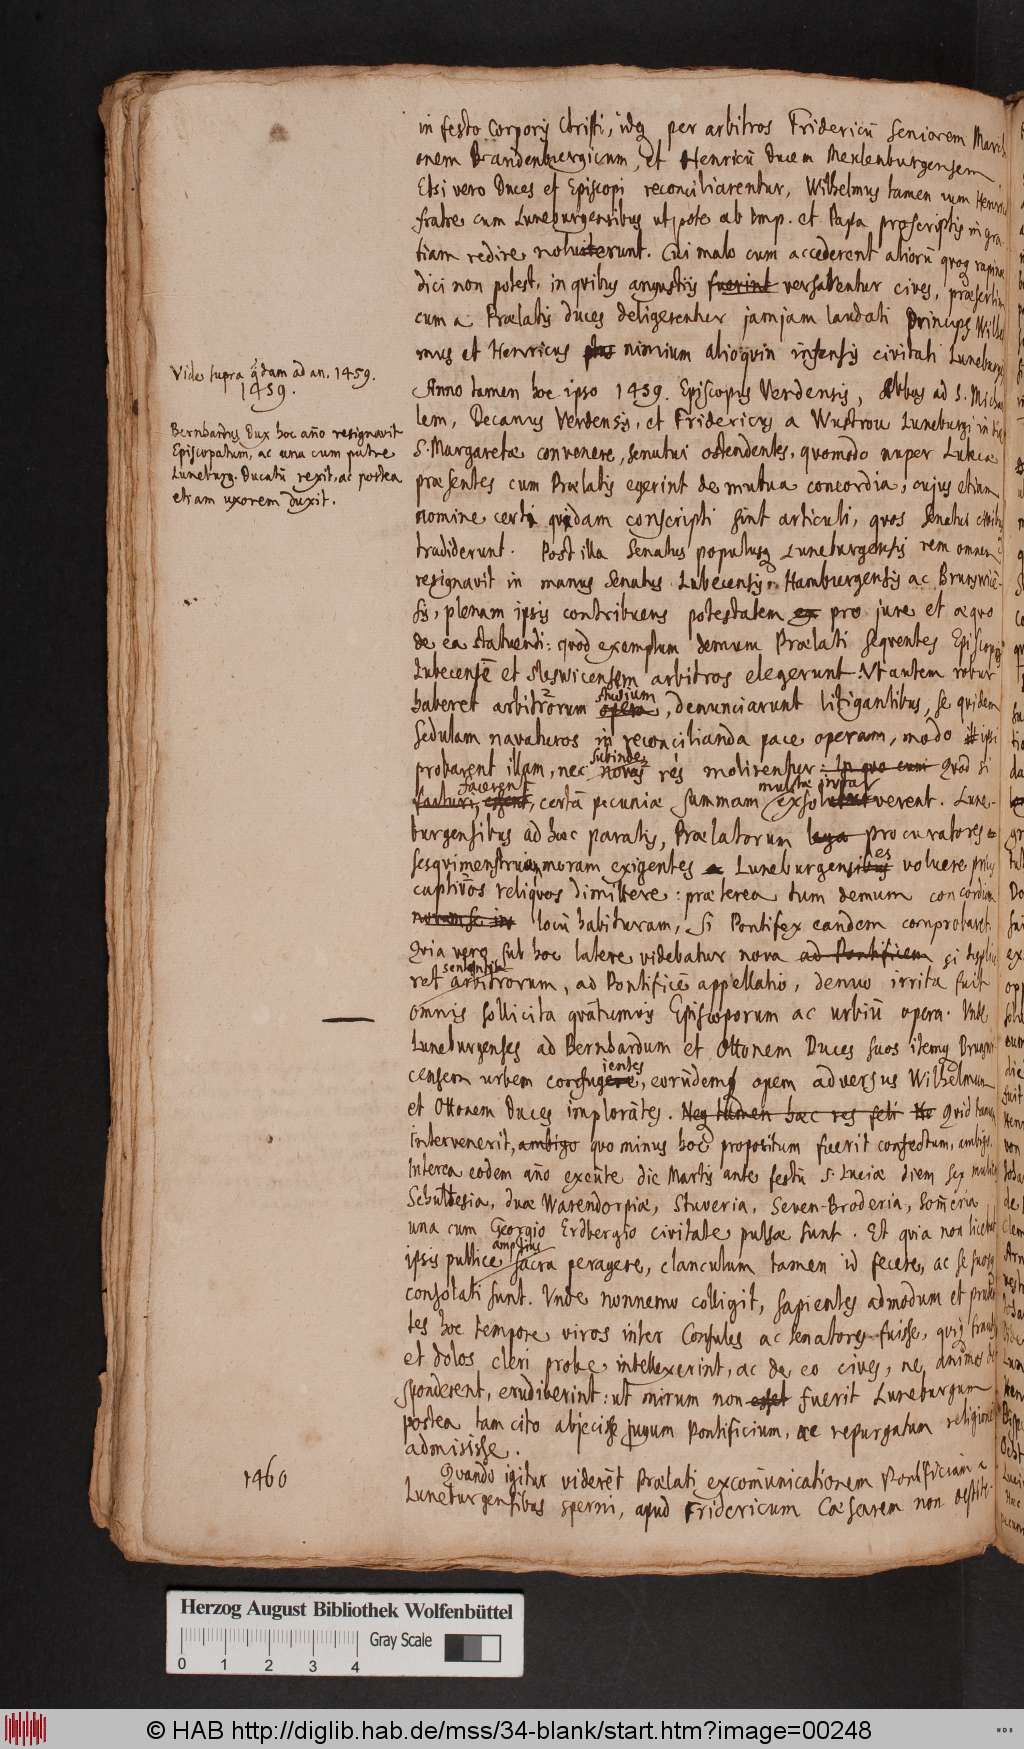 in festo Corporis Christi, idq per arbitros Fridericū Seniorem March
onem Brandenburgicum, et Henricū Ducem Meklenburgensem.
Etsi vero Duces et Episcopi reconciliarentur, Wilhelmus tamen cum Henrico
fratre cum Luneburgensibus utpote ab Imp. et Papa proscriptis in gra-
tiam redire noluerunt. Cui malo cum accederent aliorū quoq rapinæ
dici non potest, in quibus angustiis fuerint versabentur cives, præsertim
cum a Prælatis duces deligerentur jamjam laudati Princips Wilhel
mus et Henricus plus nimium alioqvin infensis civitati Luneburg
Vide supra qdam ad an. 1459.
1459.
Anno tamen hoc ipso 1459. Episcopus Verdensis, Abbas ad S. Micha
lem, Decanus Verdensis, et Fridericus a Wustrou Luneburgi in
Bernhardus Dux hoc año resignavit
Episcopatum, ac una cum patre
Luneburg. Ducatū rexit, ac postea
etiam uxorem duxit.
S. Margaretæ convenere, senatui ostendentes, quomodo nuper Lubecæ
præsentes cum Prælatis egerint de mutua concordia, cujus etiam
nomine certi quidam conscripti sint articuli, quos Senatui civita
tradiderunt. Post illa Senatus populusq Luneburgensis rem omnem
resignavit in manus Senatus Lubecensis, Hamburgensis ac Brunswicē-
sis, plenam ipsis contribuens potestatem ex pro jure et æquo
de ea statuendi: quod exemplum demum Prælati sequentes Episcopos
Lubecensē et Sleswicensem arbitros elegerunt. Ut autem robur
haberet arbitrorum studium opera, denunciarunt litigantibus, se quidem
sedulam navaturos in reconcilianda pace operam, modo ipsi
probarent illam, nec subinde novas res molirentur: In quo cum Quod si
facturi essent, facerent certā pecuniæ summam mulctæ instar exsolverent. Lune-
burgensibus ad hæc paratis, Prælatorum procuratores
sesqvimenstruam moram exigentes a Luneburgensibus es voluere prius
captivos reliquos dimittere: præterea tum demum concordiam
novam se in locū habituram, si Pontifex eandem comprobaret.
Qvia vero sub hoc latere videbatur nova ad Pontificem si displice
ret sententia arbitrorum, ad Pontificē appellatio, denuo irrita fuit
omnis sollicita qvātumvis Episcoporum ac urbiū opera. Unde
Luneburgenses ad Bernhardum et Ottonem Duces suos itemq Brunsvi
censem urbem confugere ientes, eorūdemq opem adversus Wilhelmum
et Ottonem Duces implorātes. Neq tamen hæc res Quid tamen
intervenerit, ambigo quo minus hoc propositum fuerit confectum, ambigo.
Interea eodem año exeūte die Martis ante festū S. Luciæ diem sex mulieres
Schultesia, duæ Warendorpiæ, Stuveria, Seven-Broderia, Som̄eria
una cum Georgio Erdbergio civitate pulsæ sunt. Et quia non licebat
ipsis publice amplius sacra peragere, clanculum tamen id fecere, ac se suosq
consolati sunt. Unde nonnemo colligit, sapientes admodum et pruden
tes hoc tempore viros inter Consules ac Senatores fuisse, quiq fraudes
et dolos cleri probe intellexerint, ac de eo cives, ne animos de
sponderent, erudiverint: ut mirum non esset fuerit Luneburgum
postea tam cito abjecisse jugum Pontificium, ac repurgatam religionem
admisisse.
1460
Quando igitur viderēt Prælati excom̄unicationem Pontificiam a
Luneburgensibus sperni, apud Fridericum Cæsarem non destite-
Herzog August Bibliothek Wolfenbüttel
Gray Scale
0 1 2 3 4
© HAB http://diglib.hab.de/mss/34-blank/start.htm?image=00248